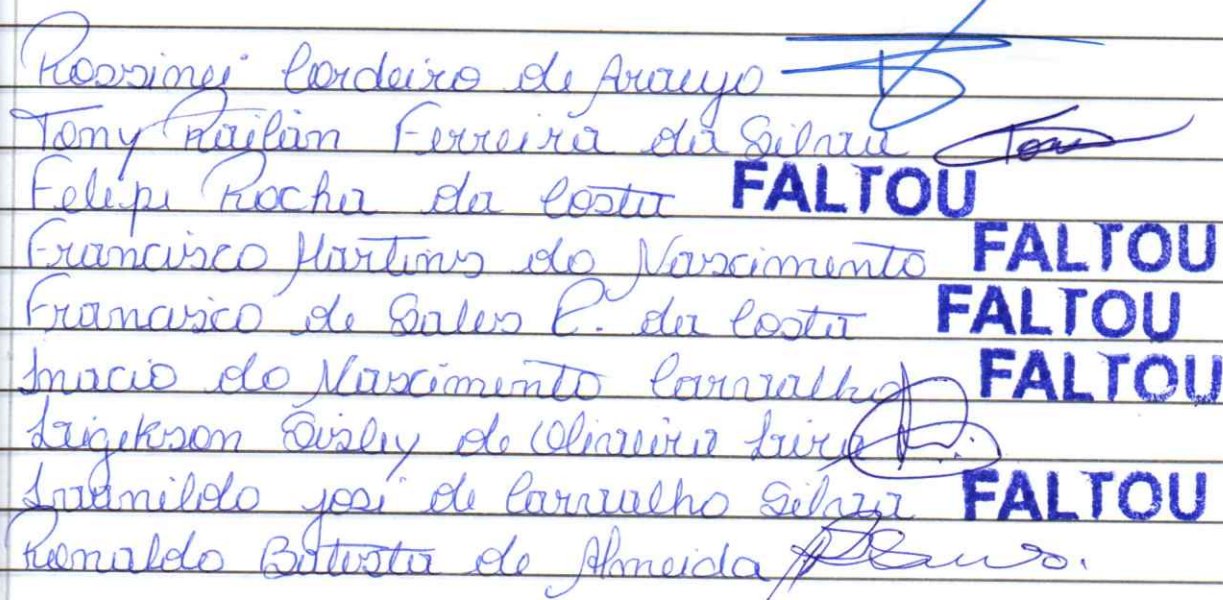 Rossinei Cordeiro de Araujo
Tony Railan Ferreira da Silva
Felipe Rocha da Costa FALTOU
Francisco Martins do Nascimento FALTOU
Francisco de Sales C. da Costa FALTOU
Inacio do Nascimento Carvalho FALTOU
de Oliveira Lira
José de Carvalho Silva FALTOU
Ronaldo Batista de Almeida